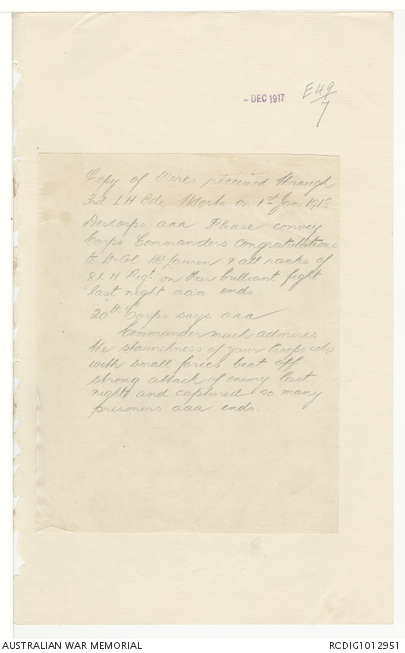 - DEC 1917
E49/7
Copy of Wires received through
3rd LH Bde on 1st
Descorps aaa Please convey
Corps Commanders congratulations
to Lt Col & all ranks of
8 L H Rgt on their brilliant fight
last night aaa ends
20th Corps says aaa
Commander much admires
the staunchness of your troops who
with small forces beat off
strong attack of enemy last
night and captured so many
prisoners aaa ends.
AUSTRALIAN WAR MEMORIAL
RCDIG1012951